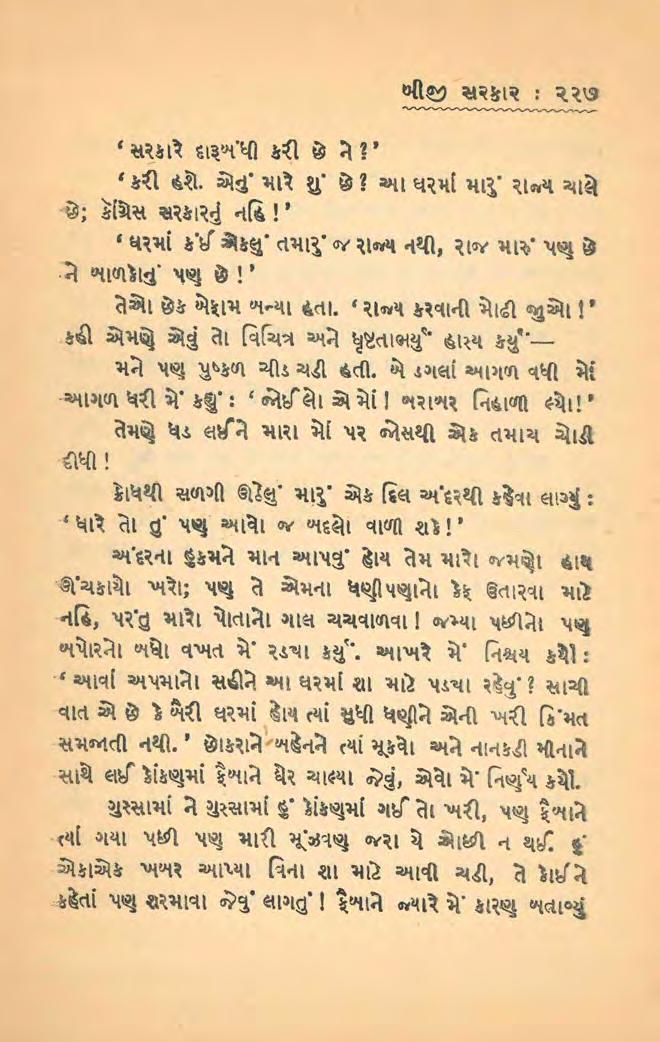 બીજી સરકાર : ૨૨૭
‘સરકારે દારૂબંધી કરી છે ને?’
‘કરી હશે. એનું મારે શું છે? આ ઘરમાં મારું રાજ્ય ચાલે
છે; કૉંગ્રેસ સરકારનું નહિ!’
‘ઘરમાં કંઈ એકલું તમારું જ રાજ્ય નથી, રાજ મારું પણ છે
ને બાળકોનું પણ છે!’
તેઓ છેક બેફામ બન્યા હતા. ‘રાજ્ય કરવાની મોઢી જુઓ!’
કહી એમણે એવું તો વિચિત્ર અને ધૃષ્ટતાભર્યું હાસ્ય કર્યું—
મને પણ પુષ્કળ ચીડ ચડી હતી. બે ડગલાં આગળ વધી મોં
આગળ ધરી મેં કહ્યું : ‘જોઈ લો એ મોં! બરાબર નિહાળી લ્યો!’
તેમણે ધડ લઈને મારા મોં પર જોસથી એક તમાચ ચોડી
દીધી!
ક્રોધથી સળગી ઊઠેલું મારું એક દિલ અંદરથી કહેવા લાગ્યું :
‘ધારે તો તું પણ આવો જ બદલો વાળી શકે!’
અંદરના હુકમને માન આપવું હોય તેમ મારો જમણો હાથ
ઊંચકાયો ખરો; પણ તે એમના ધણીપણાનો કેફ ઉતારવા માટે
નહિ, પરંતુ મારો પોતાનો ગાલ ચચવાળવા! જમ્યા પછીનો પણ
બપોરનો બધો વખત મેં રડ્યા કર્યું. આખરે મેં નિશ્ચય કર્યો :
‘આવાં અપમાનો સહીને આ ઘરમાં શા માટે પડ્યા રહેવું? સાચી
વાત એ છે કે બૈરી ઘરમાં હોય ત્યાં સુધી ધણીને એની ખરી કિંમત
સમજાતી નથી.’ છોકરાને બહેનને ત્યાં મૂકવો અને નાનકડી મીનાને
સાથે લઈ કોંકણમાં ફૈબાને ઘેર ચાલ્યા જવું, એવો મેં નિર્ણય કર્યો.
ગુસ્સામાં ને ગુસ્સામાં હું કોંકણમાં ગઈ તો ખરી, પણ ફૈબાને
ત્યાં ગયા પછી પણ મારી મૂંઝવણ જરા યે ઓછી ન થઈ. હું
એકાએક ખબર આપ્યા વિના શા માટે આવી ચડી, તે કોઈને
કહેતાં પણ શરમાવા જેવું લાગતું! ફૈબાને જ્યારે મેં કારણ બતાવ્યું